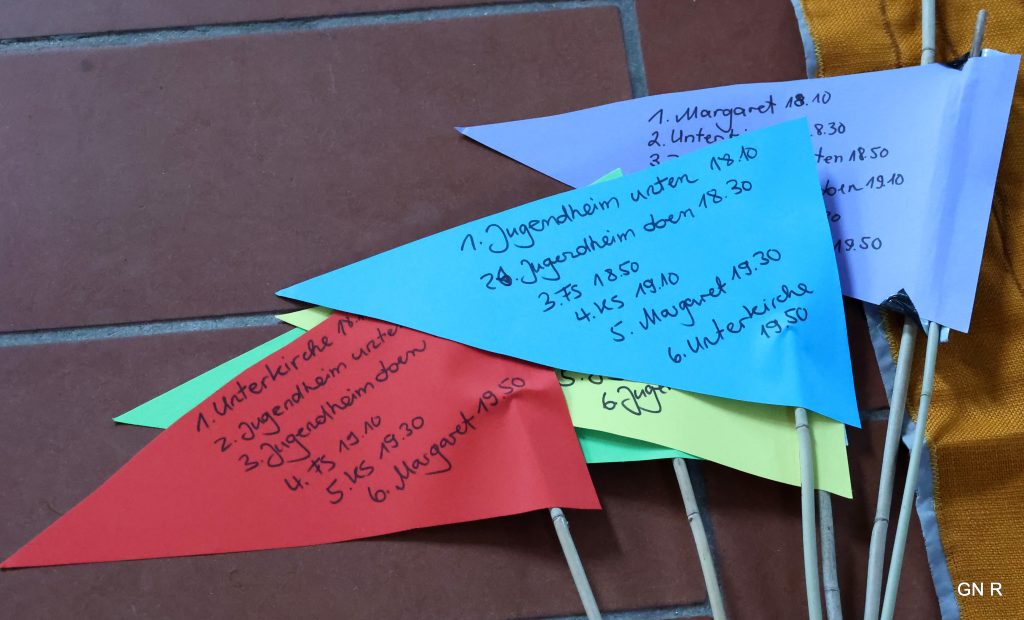 1. Margaret 18.10
2. Unterki 8.30
3. ten 18.50
ben 19.10
19.50
1. Jugendheim unten 18.10
2. Jugendheim oben 18.30
3. FS 18.50
4. KS 19.10
5. Margaret 19.30
6. Unterkirche
19.50
1. Unterkirche 18.
2. Jugendheim unten
3. Jugendheim oben
4. FS 19.10
5. KS 19.30
6. Margaret 19.50
5. J
6. Juge
GN R